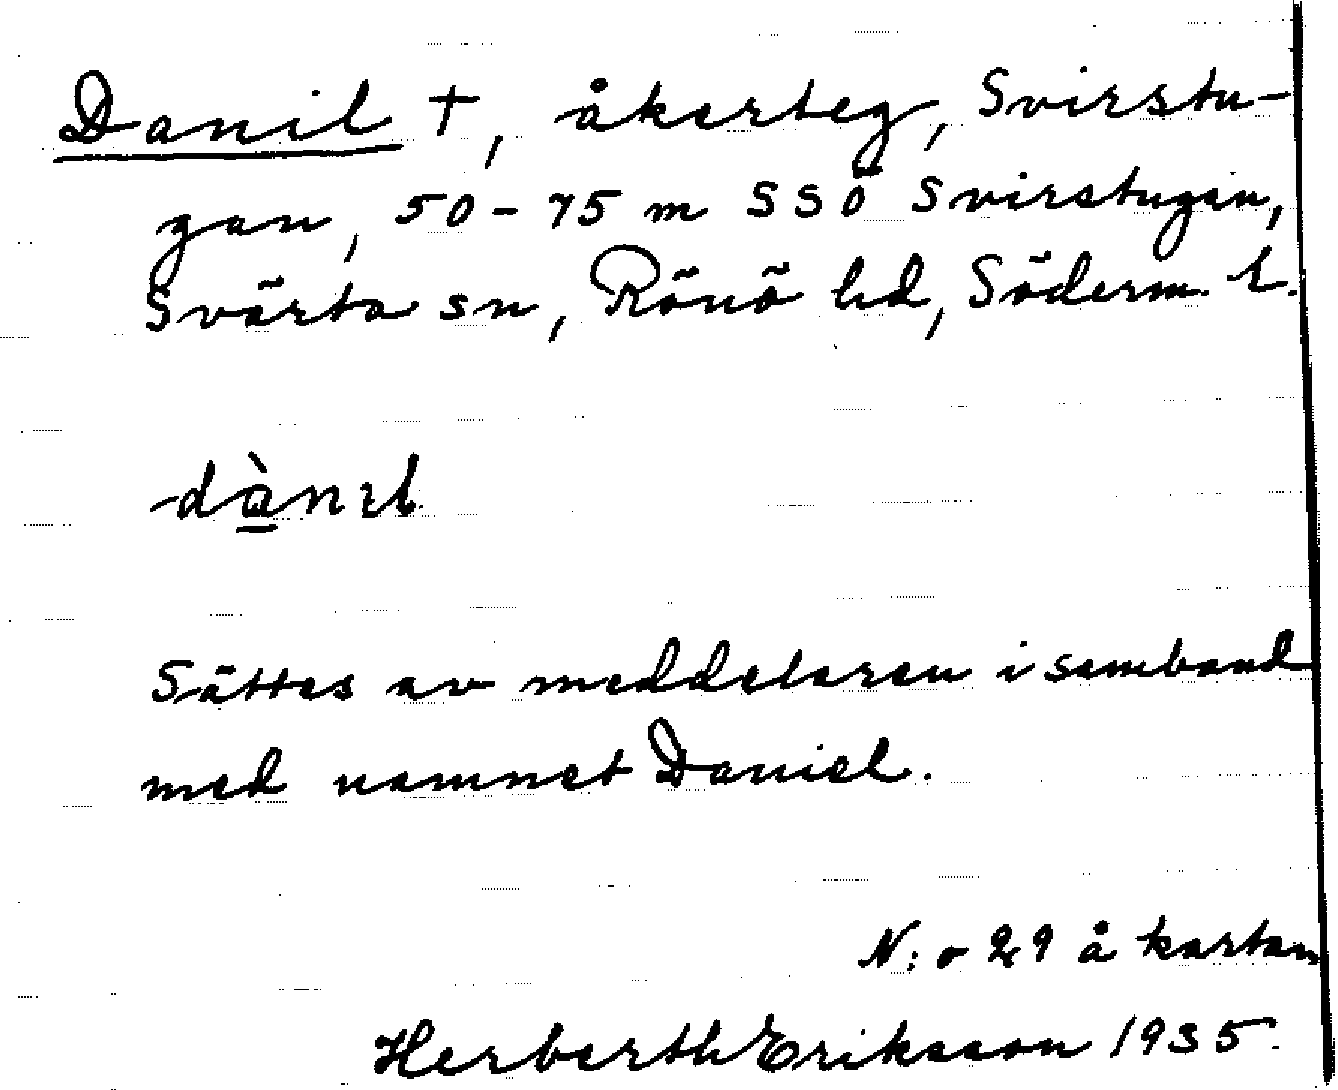 Danil †, åkerteg, Svirstu-
gan, 50-75 m SSÖ Svirstugan,
Svärta sn, Rönö hd, Söderm. l.
dànɩl
Sättes av meddelaren i samband
med namnet Daniel.
N:o 29 å kartan
Herberth Eriksson 1935.